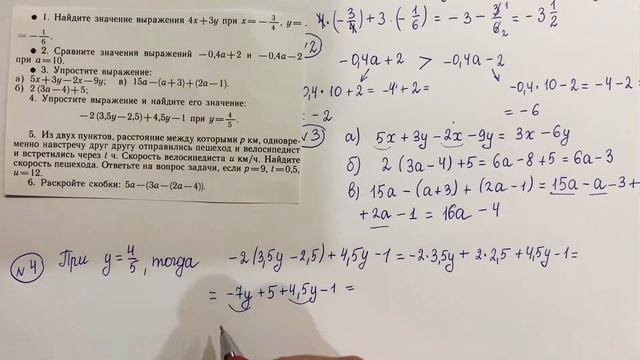 • 1. Найдите значение выражения 4x+3y при x=−3/4, y=
=−1/6.
• 2. Сравните значения выражений −0,4a+2 и −0,4a−2
при a=10.
• 3. Упростите выражение:
а) 5x+3y−2x−9y; в) 15a−(a+3)+(2a−1).
б) 2(3a−4)+5;
4. Упростите выражение и найдите его значение:
−2(3,5y−2,5)+4,5y−1 при y=4/5.
5. Из двух пунктов, расстояние между которыми p км, одновре-
менно навстречу друг другу отправились пешеход и велосипедист
и встретились через t ч. Скорость велосипедиста u км/ч. Найдите
скорость пешехода. Ответьте на вопрос задачи, если p=9, t=0,5,
u=12.
6. Раскройте скобки: 5a−(3a−(2a−4)).
4·(−3/4)+3·(−1/6)=−3−3/6=−3 1/2
2
−0,4a+2 > −0,4a−2
0,4·10+2=−4+2=
=−2
−0,4·10−2=−4−2=
=−6
№3
а) 5x+3y−2x−9y=3x−6y
б) 2(3a−4)+5=6a−8+5=6a−3
в) 15a−(a+3)+(2a−1)=15a−a−3+
+2a−1=16a−4
№4 При y=4/5, тогда −2(3,5y−2,5)+4,5y−1=−2·3,5y+2·2,5+4,5y−1=
=−7y+5+4,5y−1=